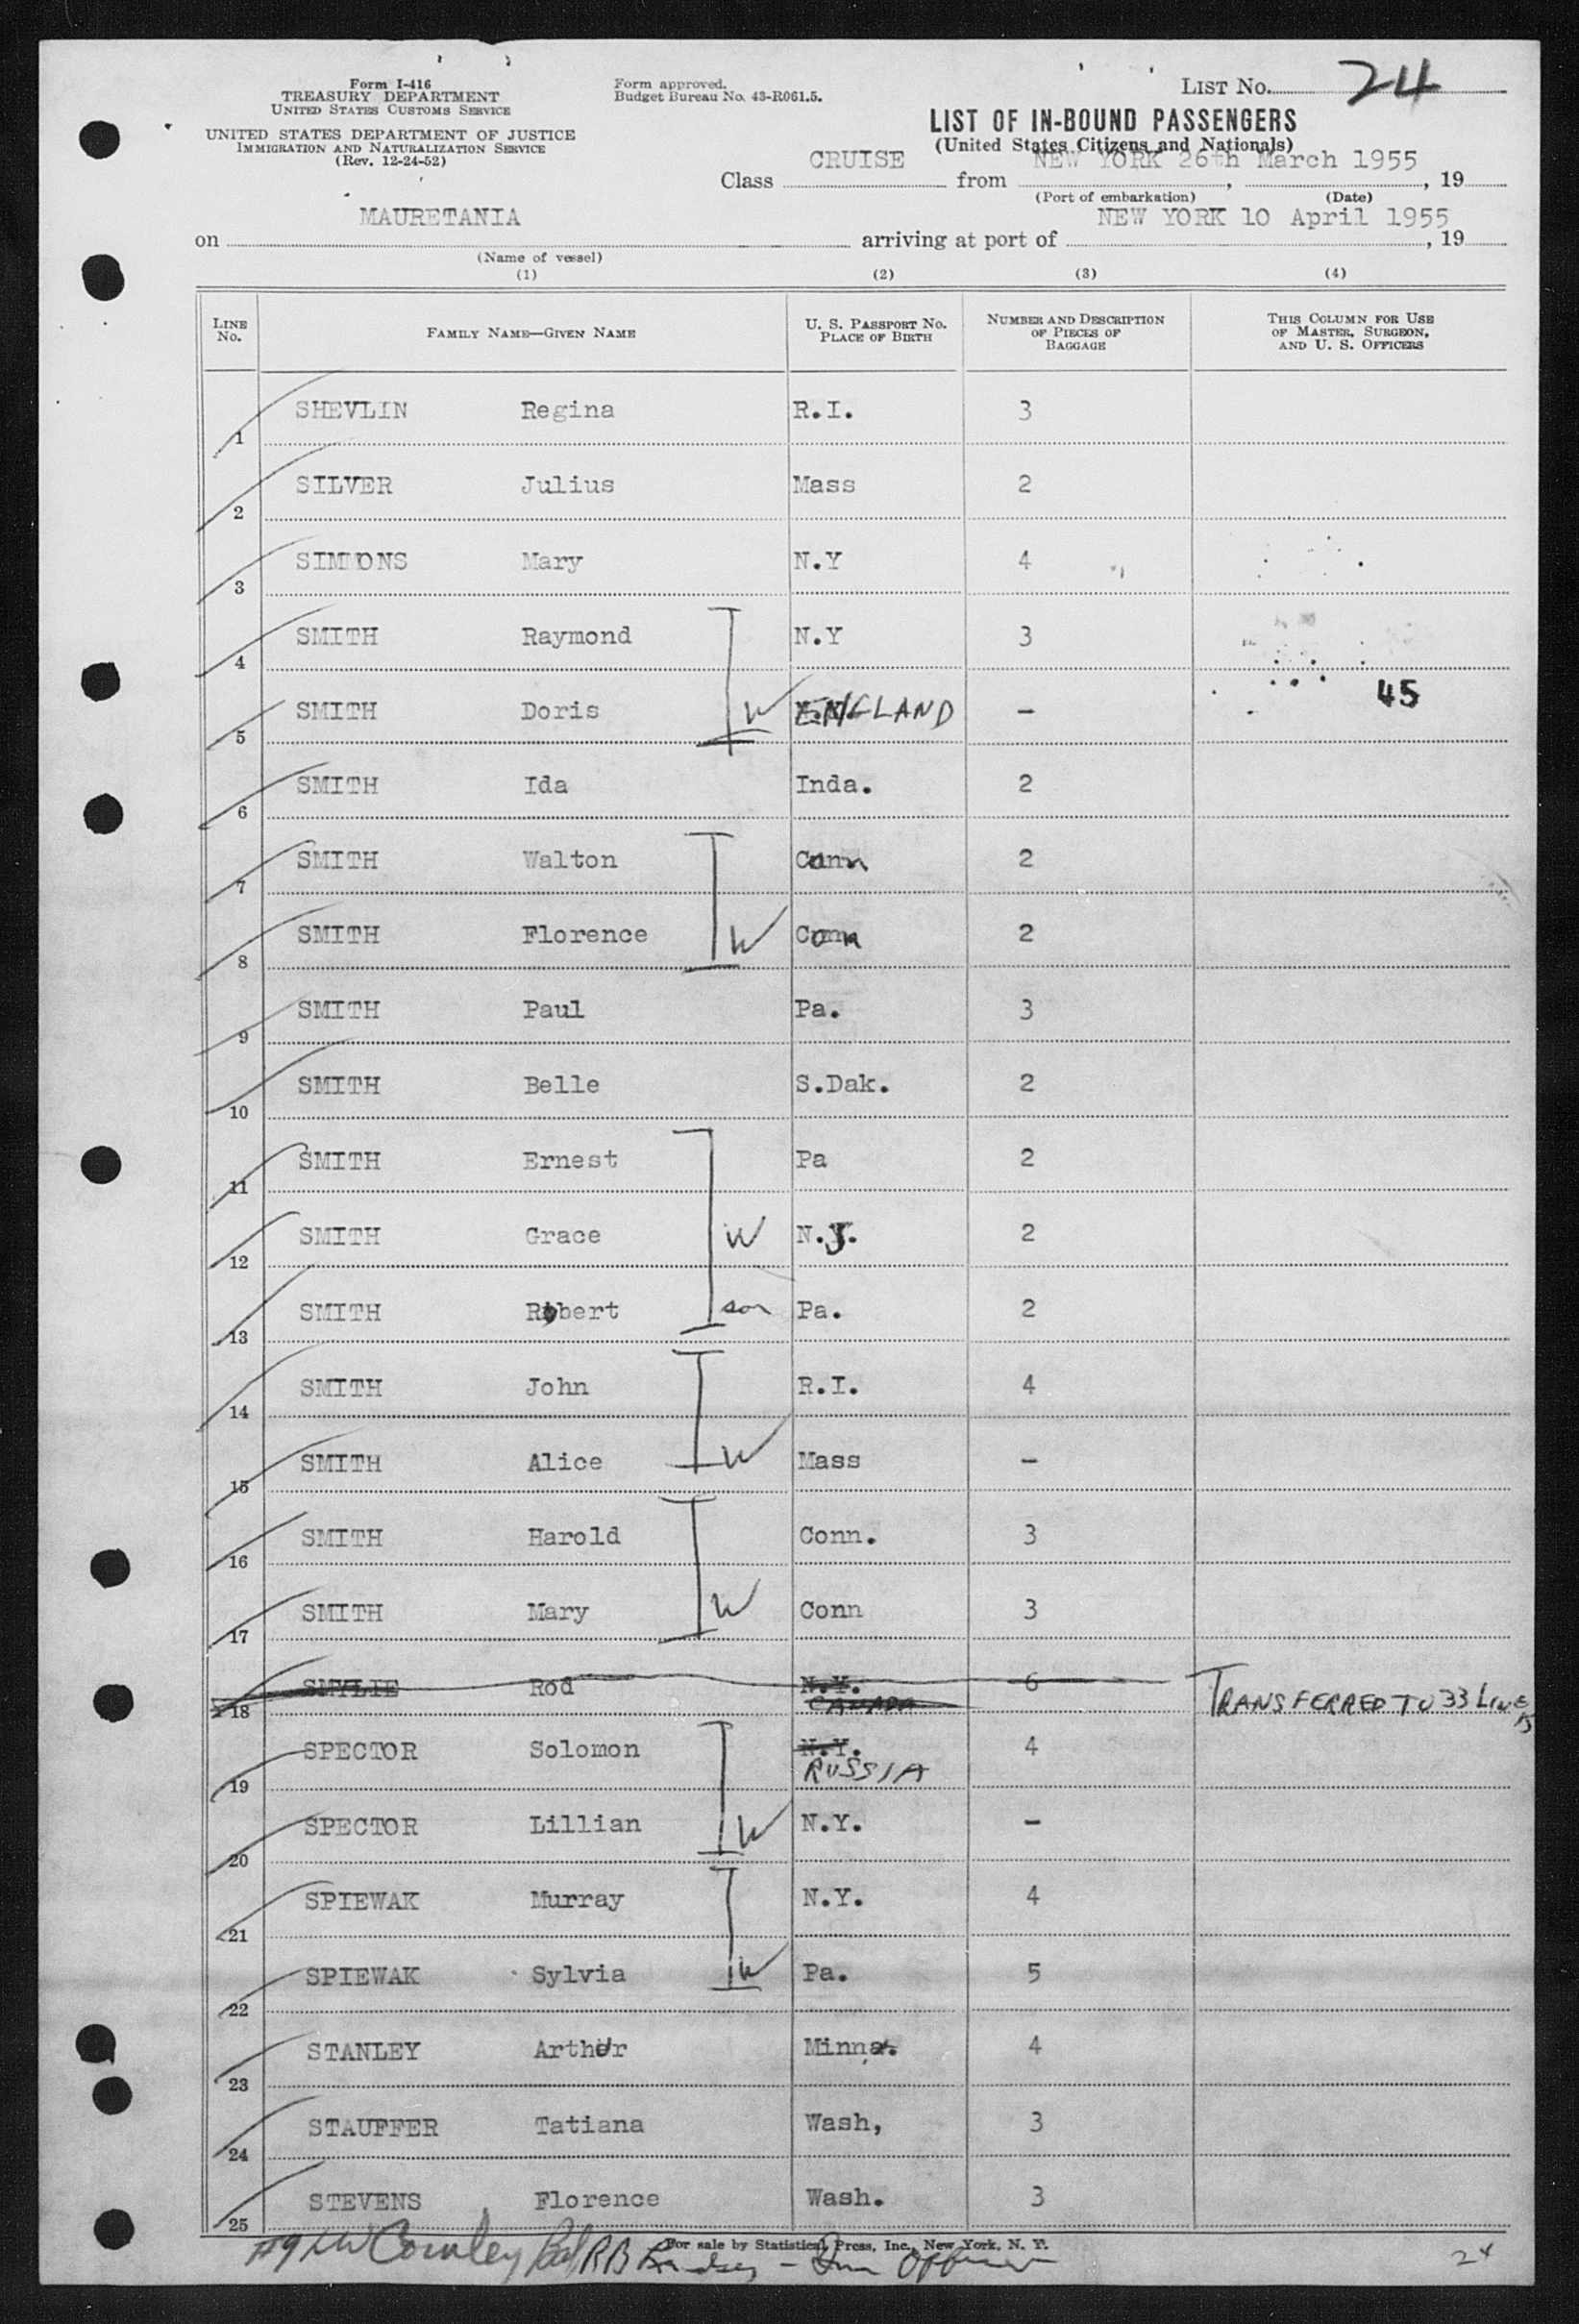 Form I-416
TREASURY DEPARTMENT
UNITED STATES CUSTOMS SERVICE
UNITED STATES DEPARTMENT OF JUSTICE
IMMIGRATION AND NATURALIZATION SERVICE
(Rev. 12-24-52)
Form approved.
Budget Bureau No. 43-R061.5.
LIST No. 24
LIST OF IN-BOUND PASSENGERS
(United States Citizens and Nationals)
Class CRUISE from NEW YORK 26th March 1955, 19
(Port of embarkation) (Date)
on MAURETANIA arriving at port of NEW YORK 10 April 1955, 19
(Name of vessel)
(1) (2) (3) (4)
LINE No. FAMILY NAME—GIVEN NAME U. S. PASSPORT No. PLACE OF BIRTH NUMBER AND DESCRIPTION OF PIECES OF BAGGAGE THIS COLUMN FOR USE OF MASTER, SURGEON, AND U. S. OFFICERS
1 SHEVLIN Regina R.I. 3
2 SILVER Julius Mass 2
3 SIMMONS Mary N.Y 4
4 SMITH Raymond N.Y 3
5 SMITH Doris W ENGLAND - 45
6 SMITH Ida Inda. 2
7 SMITH Walton Conn 2
8 SMITH Florence W Conn 2
9 SMITH Paul Pa. 3
10 SMITH Belle S.Dak. 2
11 SMITH Ernest Pa 2
12 SMITH Grace W N.J. 2
13 SMITH Robert son Pa. 2
14 SMITH John R.I. 4
15 SMITH Alice W Mass -
16 SMITH Harold Conn. 3
17 SMITH Mary W Conn 3
18 SMYLIE Rod N.Y. CANADA 6 TRANSFERRED TO 33 LINE
19 SPECTOR Solomon N.Y. RUSSIA 4
20 SPECTOR Lillian W N.Y. -
21 SPIEWAK Murray N.Y. 4
22 SPIEWAK Sylvia W Pa. 5
23 STANLEY Arthur Minn.
4
24 STAUFFER Tatiana Wash, 3
25 STEVENS Florence Wash. 3
For sale by Statistical Press, Inc., New York, N. Y.
24